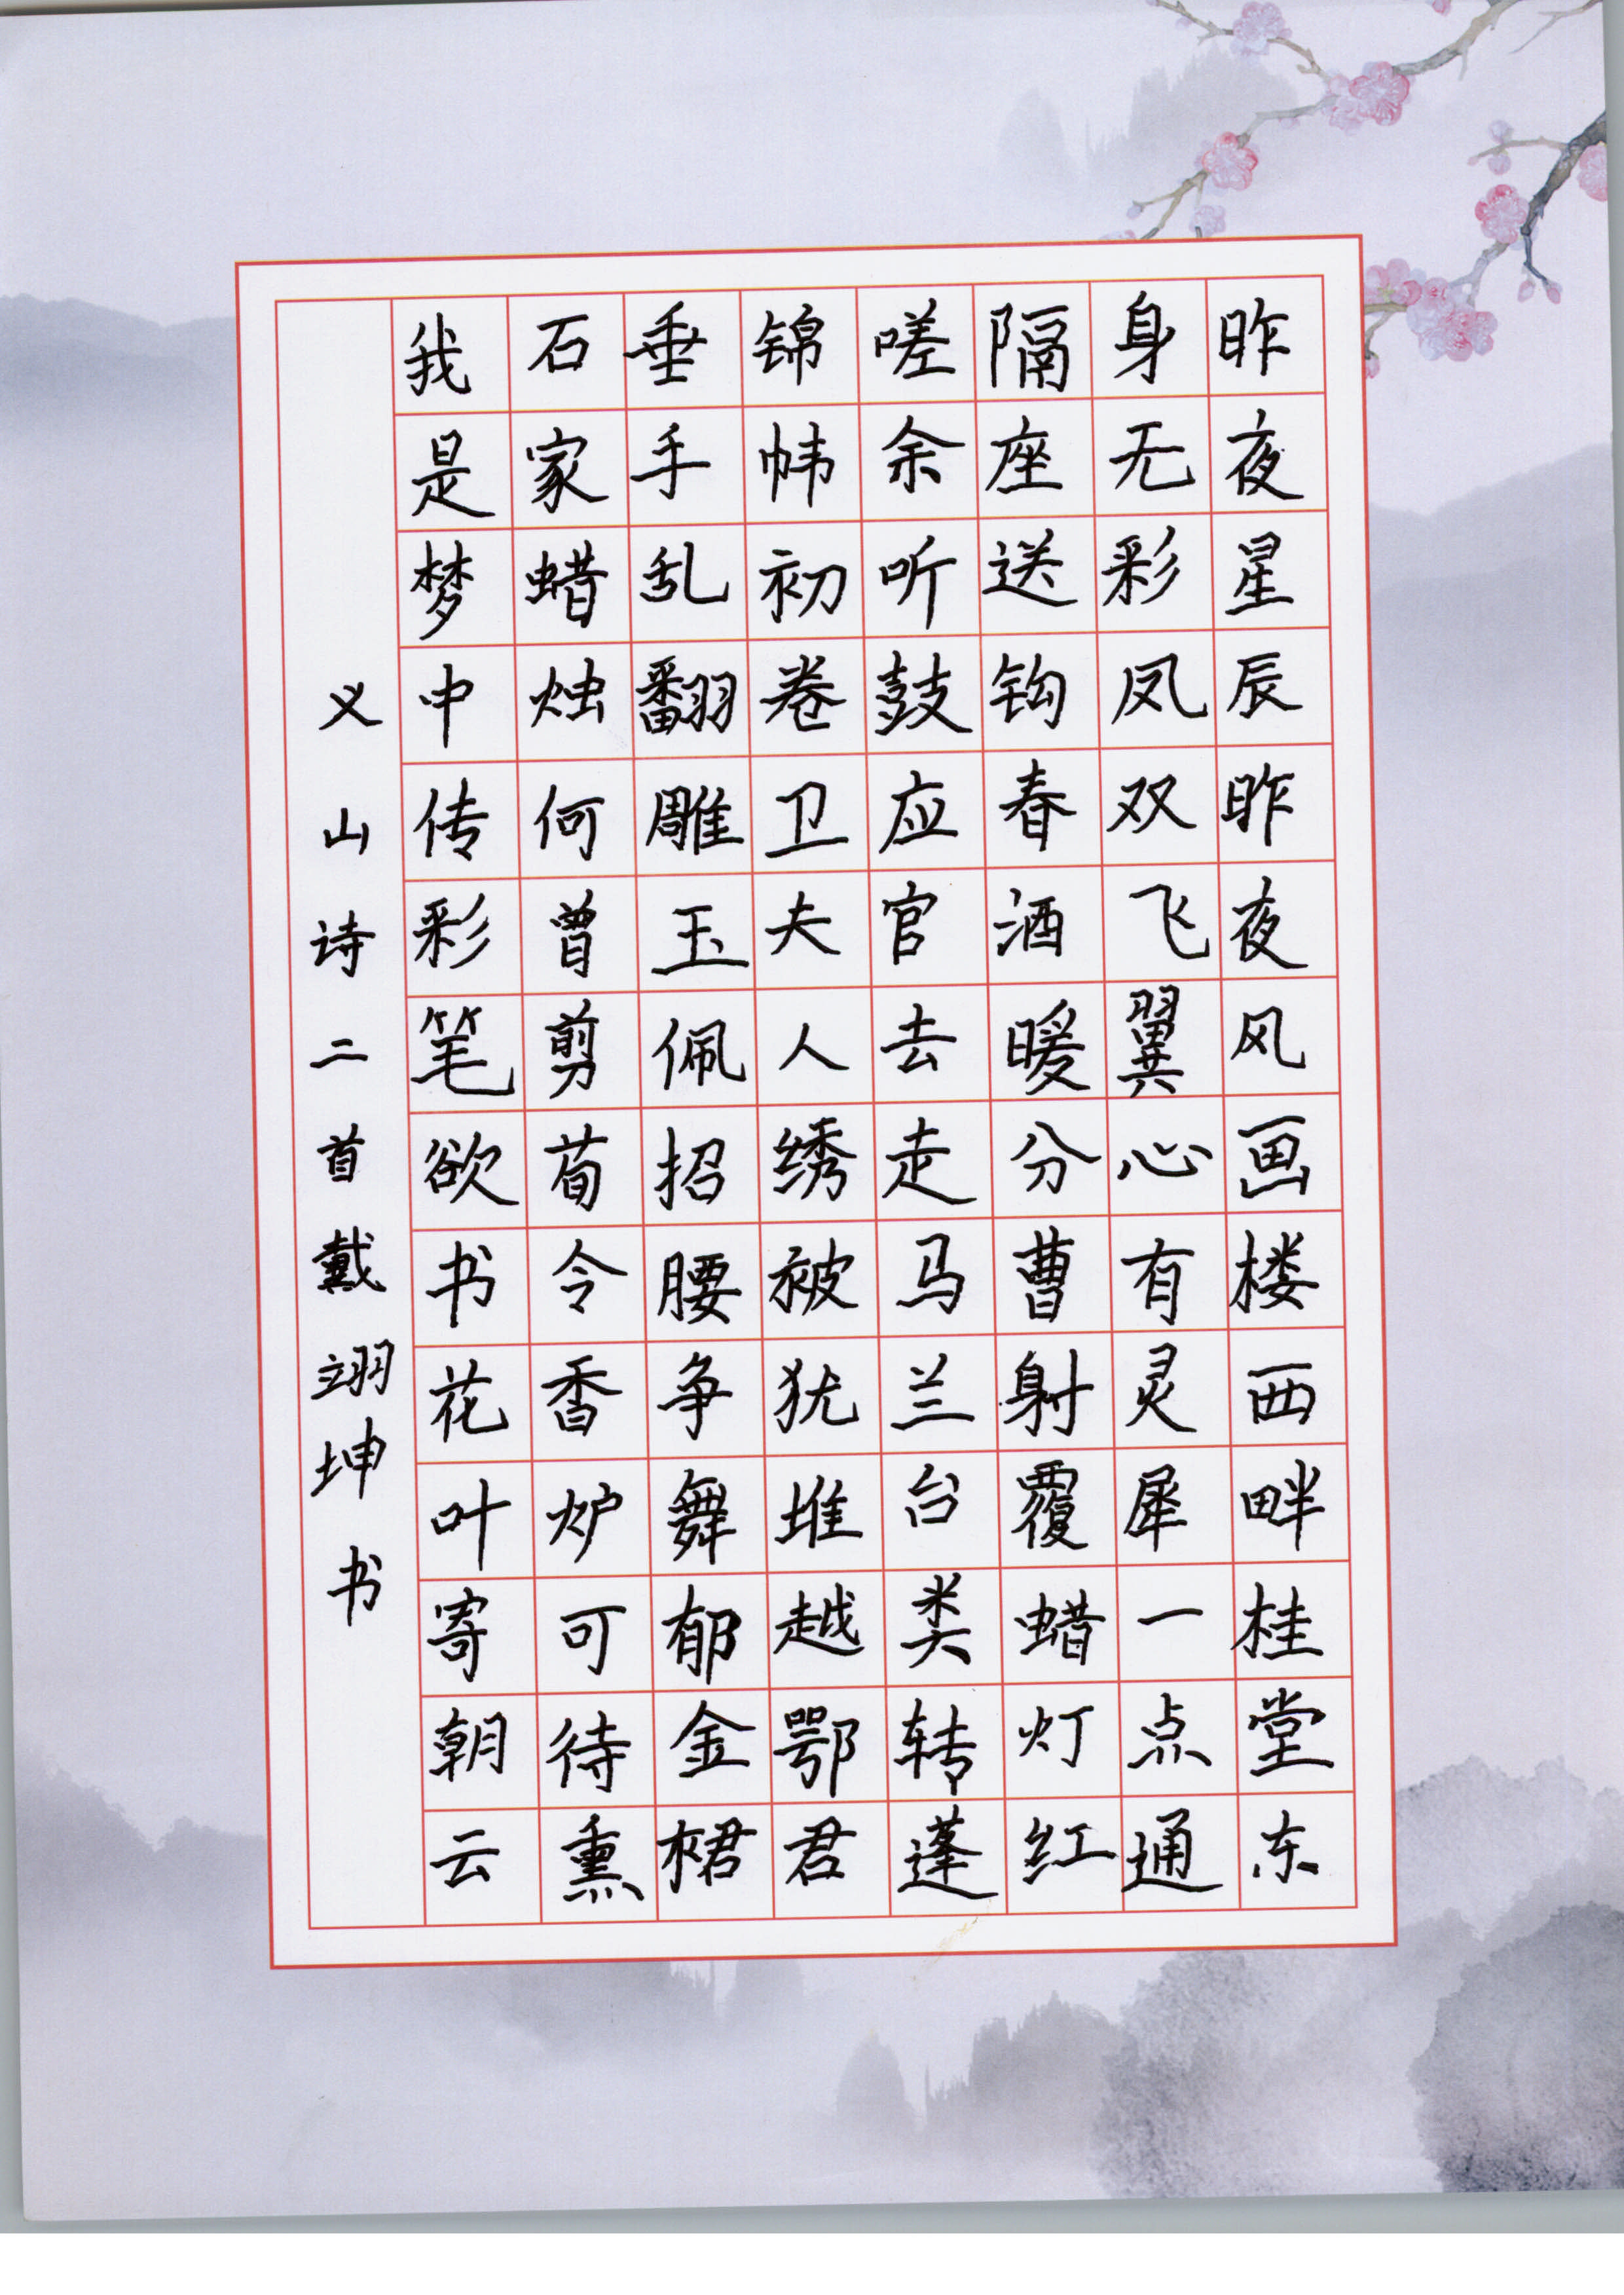 昨夜星辰昨夜风画楼西畔桂堂东
身无彩凤双飞翼心有灵犀一点通
隔座送钩春酒暖分曹射覆蜡灯红
嗟余听鼓应官去走马兰台类转蓬
锦帏初卷卫夫人绣被犹堆越鄂君
垂手乱翻雕玉佩招腰争舞郁金裙
石家蜡烛何曾剪荀令香炉可待熏
我是梦中传彩笔欲书花叶寄朝云
义山诗二首戴翊坤书